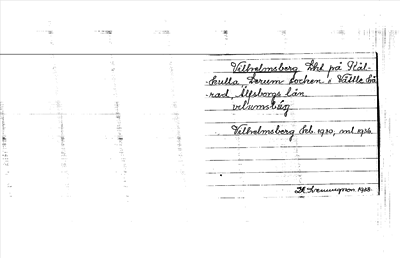 Vilhelmsberg Lht på Käl-
kulla, Lerum socken, Vättle hä
rad, Älfsborgs län.
vilumsbäg.
Vilhelmsberg Leb. 1930, ml 1936.
1938.